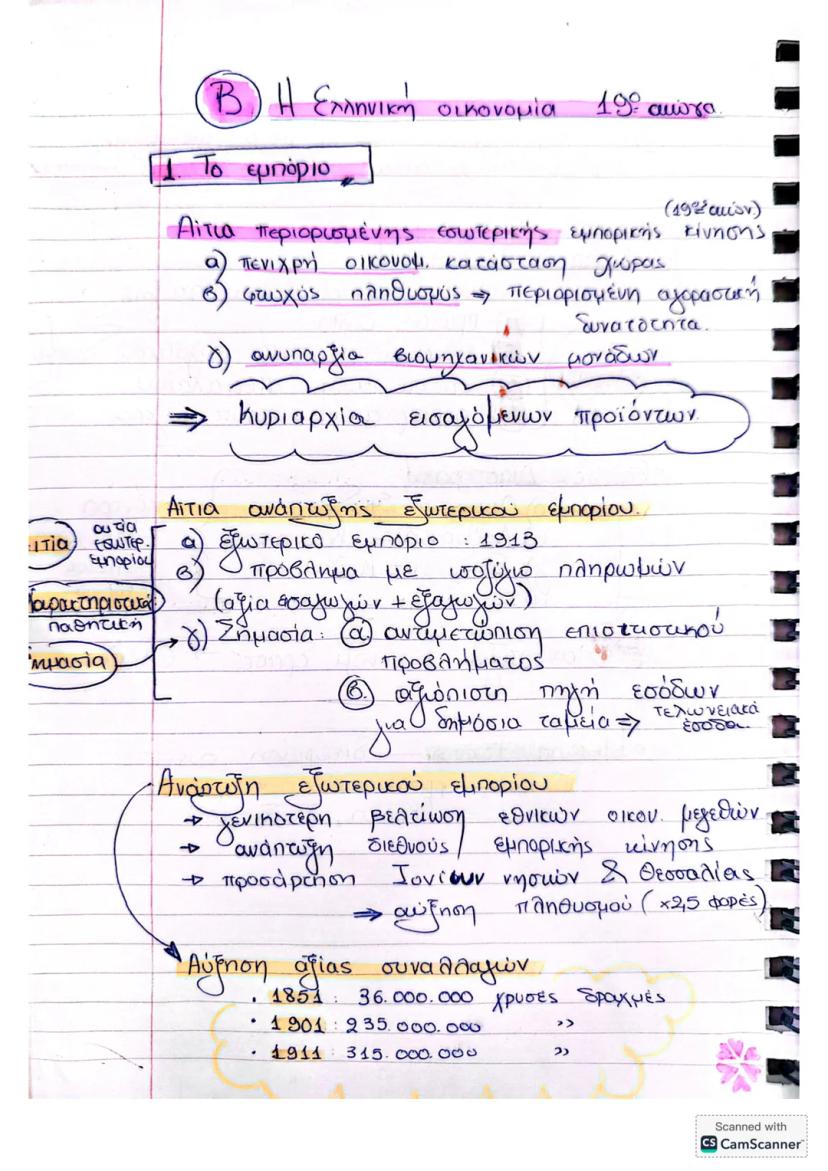 Β Η Ελληνική οικονομία 19ο αιώνα
1. Το εμπόριο
(19ος αιών.)
Αίτια περιορισμένης εσωτερικής εμπορικής κίνησης
α) πενιχρή οικονομ. κατάσταση χώρας
β) φτωχός πληθυσμός ⇒ περιορισμένη αγοραστική
δυνατότητα.
γ) ανυπαρξία βιομηχανικών μονάδων
⇒ Κυριαρχία εισαγόμενων προϊόντων
Αίτια ανάπτυξης εξωτερικού εμπορίου.
ιτία
αιτία
εσωτερ.
εμπορίου
α) εξωτερικό εμπόριο : 1913
β) πρόβλημα με ισοζύγιο πληρωμών
χαρακτηριστικά
(αξία εσαγωγών + εξαγωγών)
παθητική
γ) Σημασία: α. αντιμετώπιση επισιτιστικού
προβλήματος
ημασία
β. αξιόπιστη πηγή εσόδων
για δημόσια ταμεία ⇒ τελωνειακά
έσοδα.
Ανάπτυξη εξωτερικού εμπορίου
→ γενικότερη βελτίωση εθνικών οικον. μεγεθών
→ ανάπτυξη διεθνούς εμπορικής κίνησης
→ προσάρτηση Ιονίων νησιών & Θεσσαλίας
⇒ αύξηση πληθυσμού (×2,5 φορές)
Αύξηση αξίας συναλλαγών
· 1851 : 36.000.000 χρυσές δραχμές
· 1901 : 235.000.000 »
· 1911 : 315.000.000 »
Scanned with
CS CamScanner